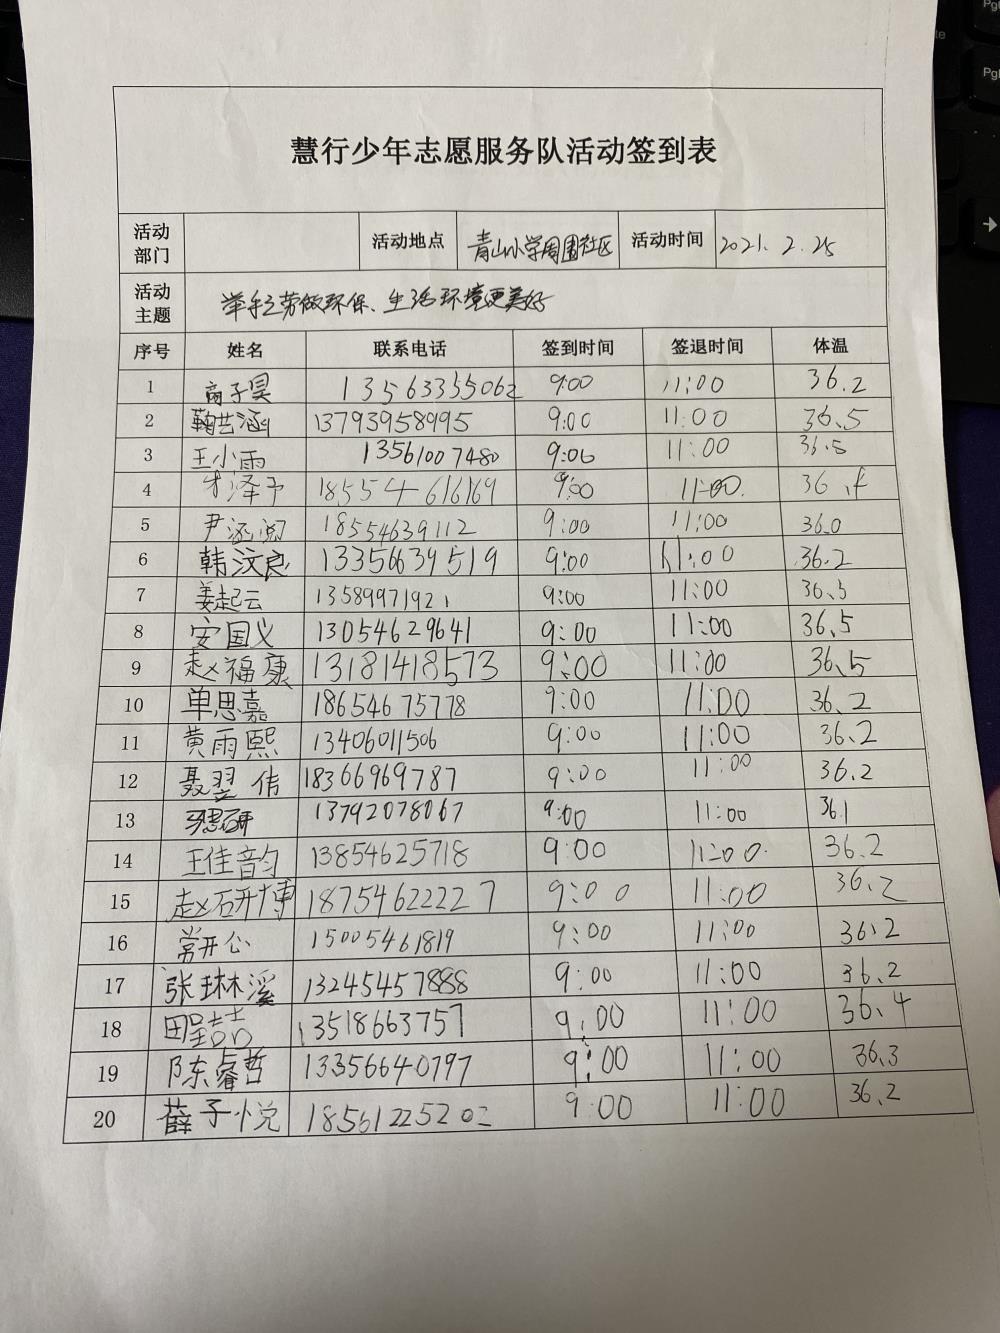 慧行少年志愿服务队活动签到表
活动部门 活动地点 青山小学周围社区 活动时间 2021.2.25
活动主题 举手之劳做环保、生活环境更美好
序号 姓名 联系电话 签到时间 签退时间 体温
1 商子昊 13563355062 9:00 11:00 36.2
2 鞠艺涵 13793958995 9:00 11:00 36.5
3 王小雨 13561007480 9:00 11:00 36.5
4 泽予 18554616169 9:00 11:00 36.
5 尹 18554639112 9:00 11:00 36.0
6 韩汶良 13356639519 9:00 11:00 36.2
7 姜起云 13589971921 9:00 11:00 36.5
8 安国义 13054629641 9:00 11:00 36.5
9 赵福康 13181418573 9:00 11:00 36.5
10 单思嘉 18654675778 9:00 11:00 36.2
11 黄雨熙 13406011506 9:00 11:00 36.2
12 聂翌倩 18366969787 9:00 11:00 36.2
13 13792078067 9:00 11:00 36.1
14 王佳韵 13854625718 9:00 11:00 36.2
15 赵研博 18754622227 9:00 11:00 36.2
16 常开心 15005461819 9:00 11:00 36.2
17 张琳溪 13245457888 9:00 11:00 36.2
18 13518663757 9:00 11:00 36.4
19 陈睿哲 13356640797 9:00 11:00 36.3
20 薛子悦 18561225202 9:00 11:00 36.2